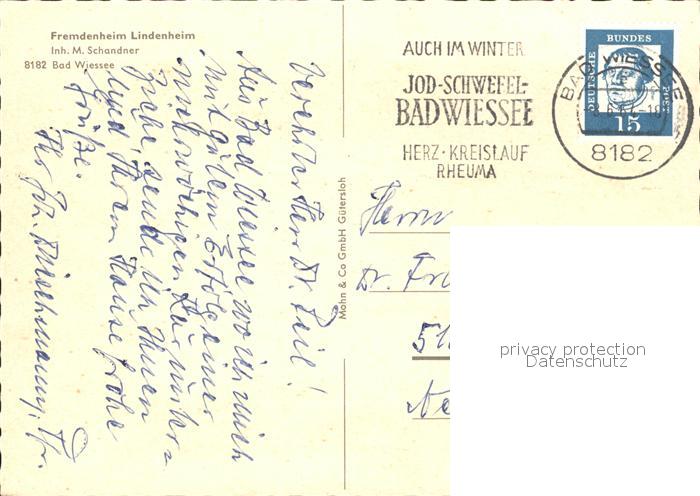 Fremdenheim Lindenheim
Inh. M. Schandner
8182 Bad Wiessee
Verehrter Herr Dr.
Aus Bad Wiessee wo ich mich
mit gutem Erfolg einer
Kur
sende ich Ihnen
und Ihrem Hause frohe
Grüße.
Ihr
Mohn & Co GmbH Gütersloh
AUCH IM WINTER
JOD-SCHWEFEL-
BAD WIESSEE
HERZ·KREISLAUF
RHEUMA
BAD WIESSEE
8182
DEUTSCHE
BUNDES
POST
15
Herrn
Dr.
51
privacy protection
Datenschutz